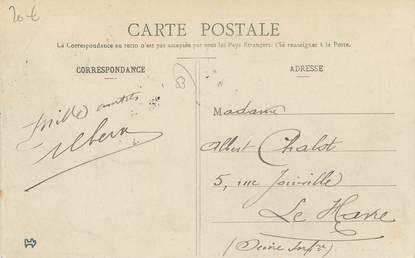 20 €
CARTE POSTALE
La Correspondance au recto n'est pas acceptée par tous les Pays Étrangers. (Se renseigner à la Poste.
CORRESPONDANCE
ADRESSE
Mille
Madame
Albert Chalot
5, rue Joinville
Le Havre
(Seine Infre)